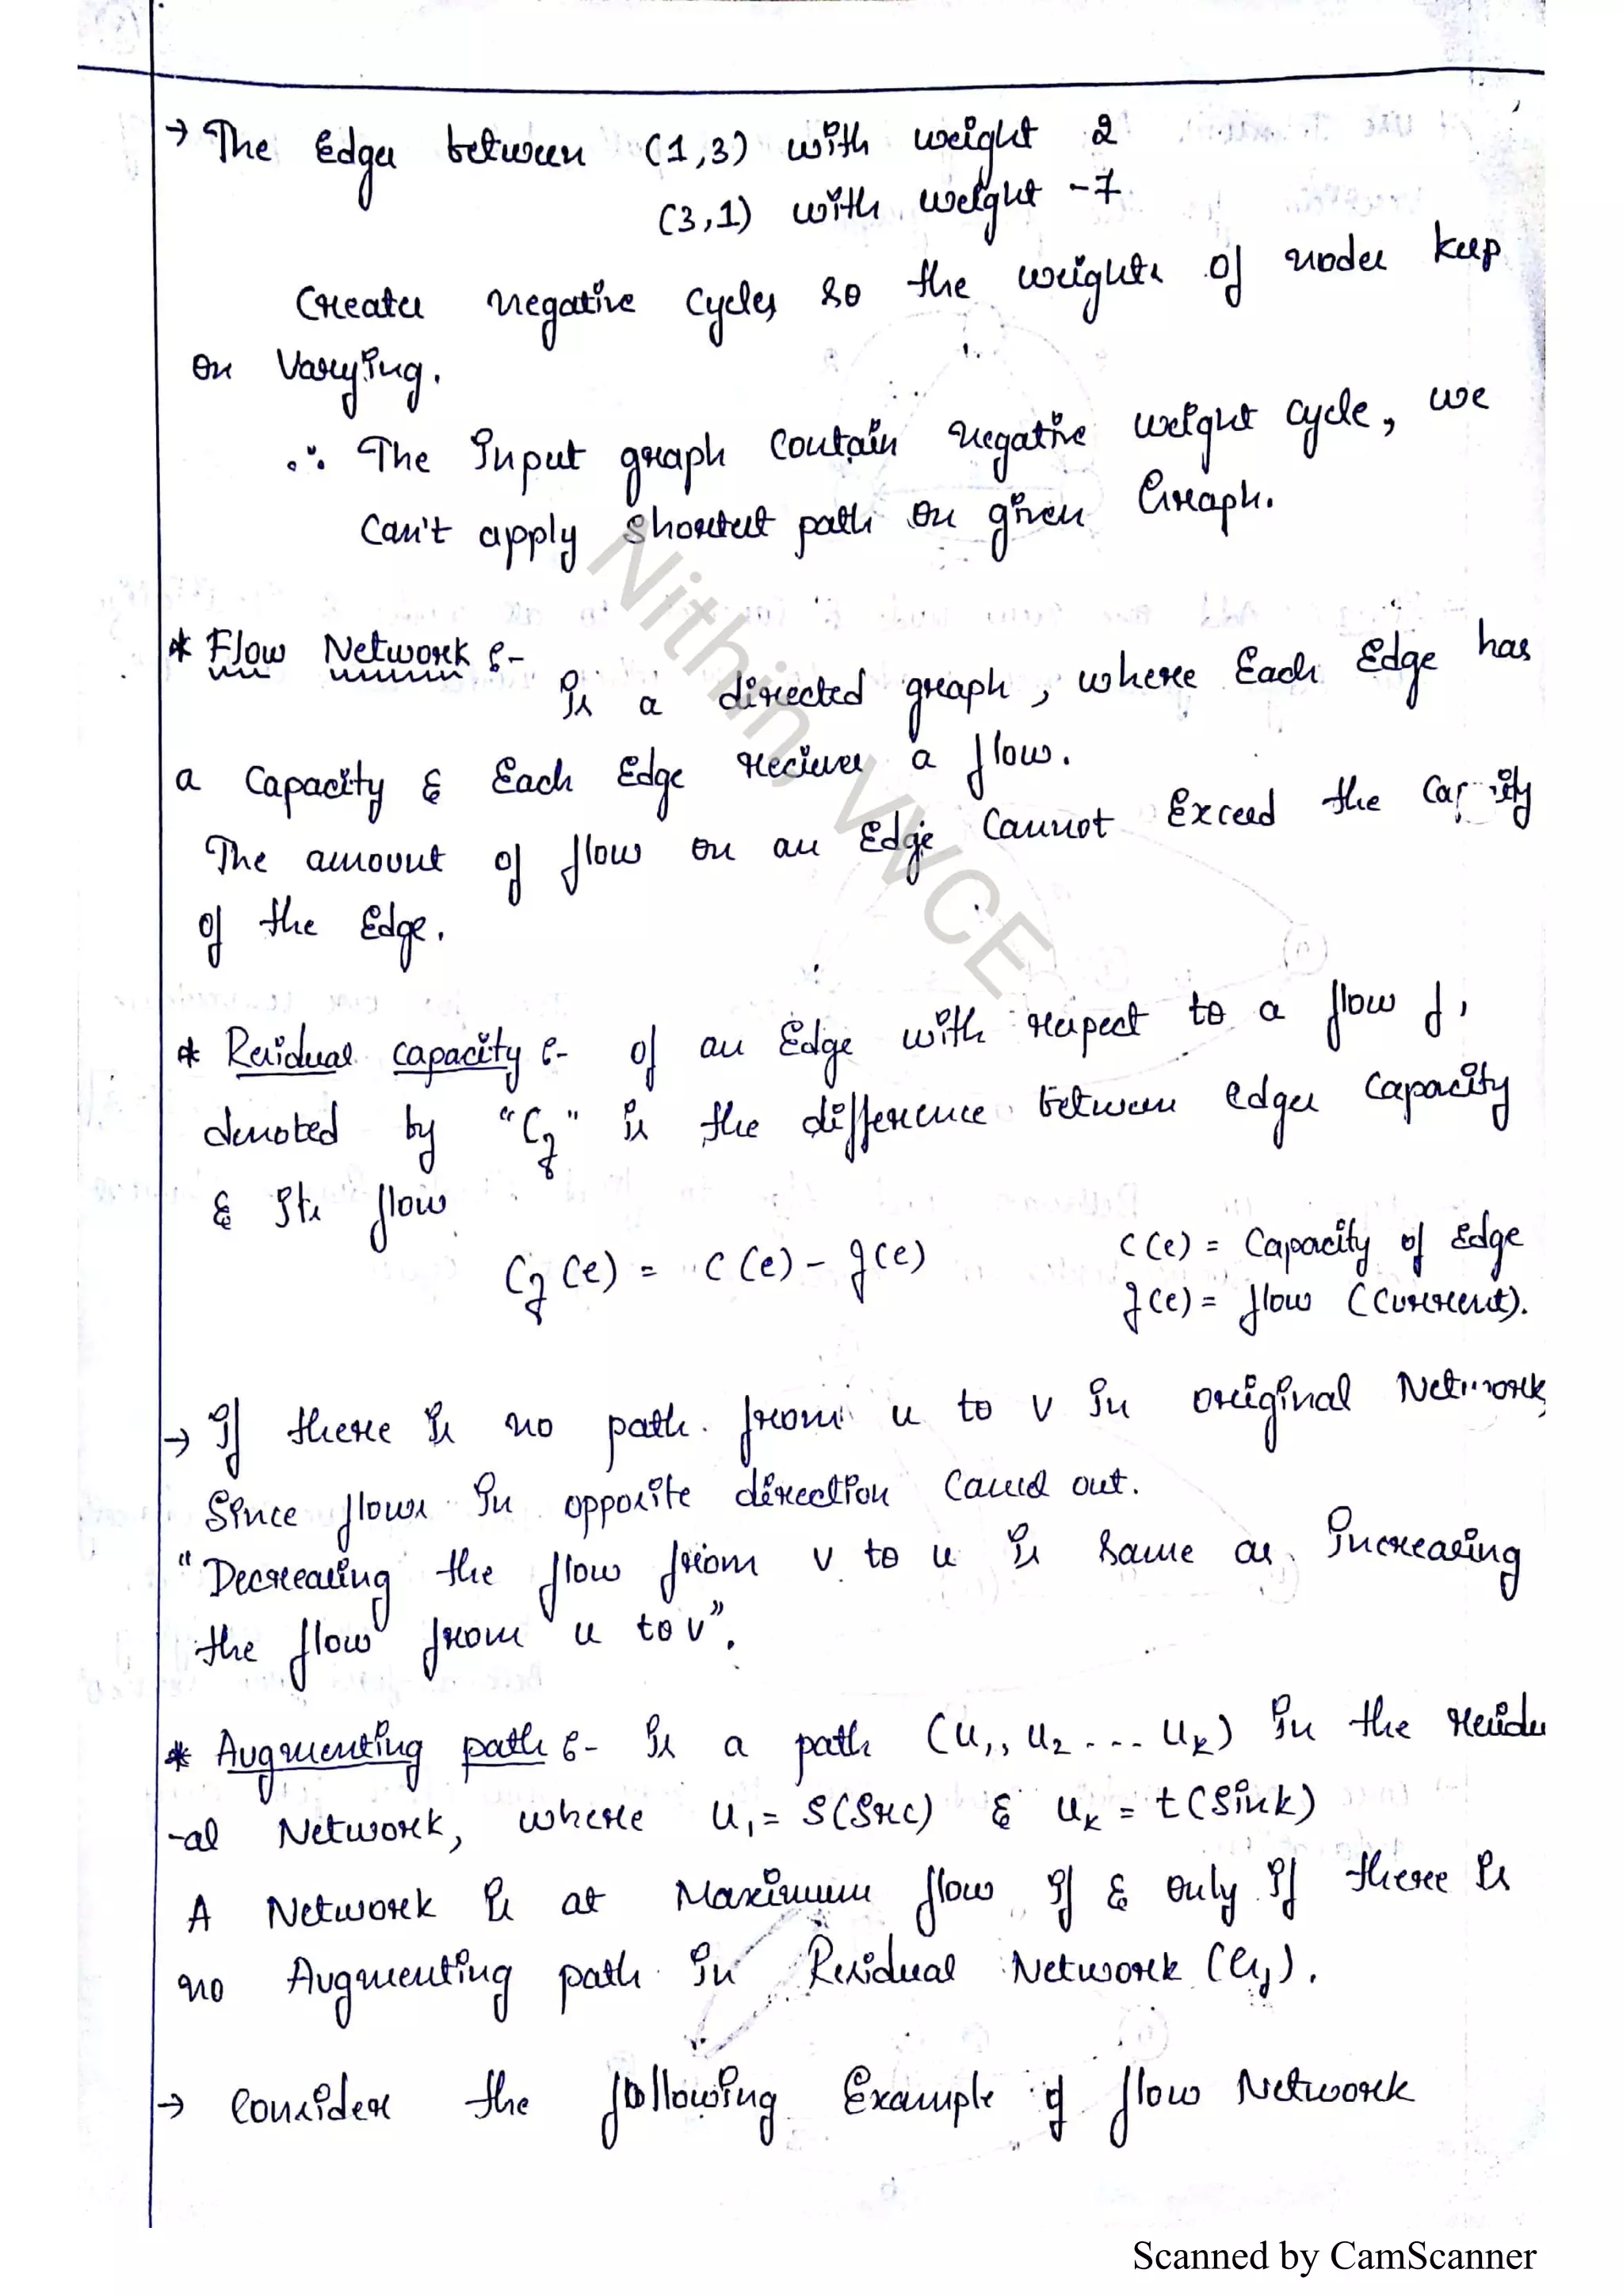 → The Edges between (1,3) with weight 2
(3,1) with weight -7
Creates negative cycles so the weights of nodes keep
on Varying.
∴ The Input graph Contain negative weight cycle, we
Can't apply shortest path on given Graph.
* Flow Network :-
Is a directed graph, where Each Edge has
a Capacity & Each Edge recives a flow.
The amount of flow on an Edge Cannot Exceed the Capacity
of the Edge.
* Residual capacity :- of an Edge with respect to a flow f,
denoted by "Cf" is the difference between edges Capacity
& Its flow
Cf(e) = C(e) - f(e)
C(e) = Capacity of Edge
f(e) = flow (Current).
→ If there is no path from u to v in original Network,
Since flows in opposite direction Cancel out.
"Decreasing the flow from v to u is same as Increasing
the flow from u to v".
* Augmenting path :- Is a path (u1, u2 ... uk) in the residu
-al Network, where u1 = S(Src) & uk = t(Sink)
A Network is at Maximum flow if & only if there is
no Augmenting path in Residual Network (Gf).
→ Consider the following Example of flow Network
Nithin, VVCE
Scanned by CamScanner